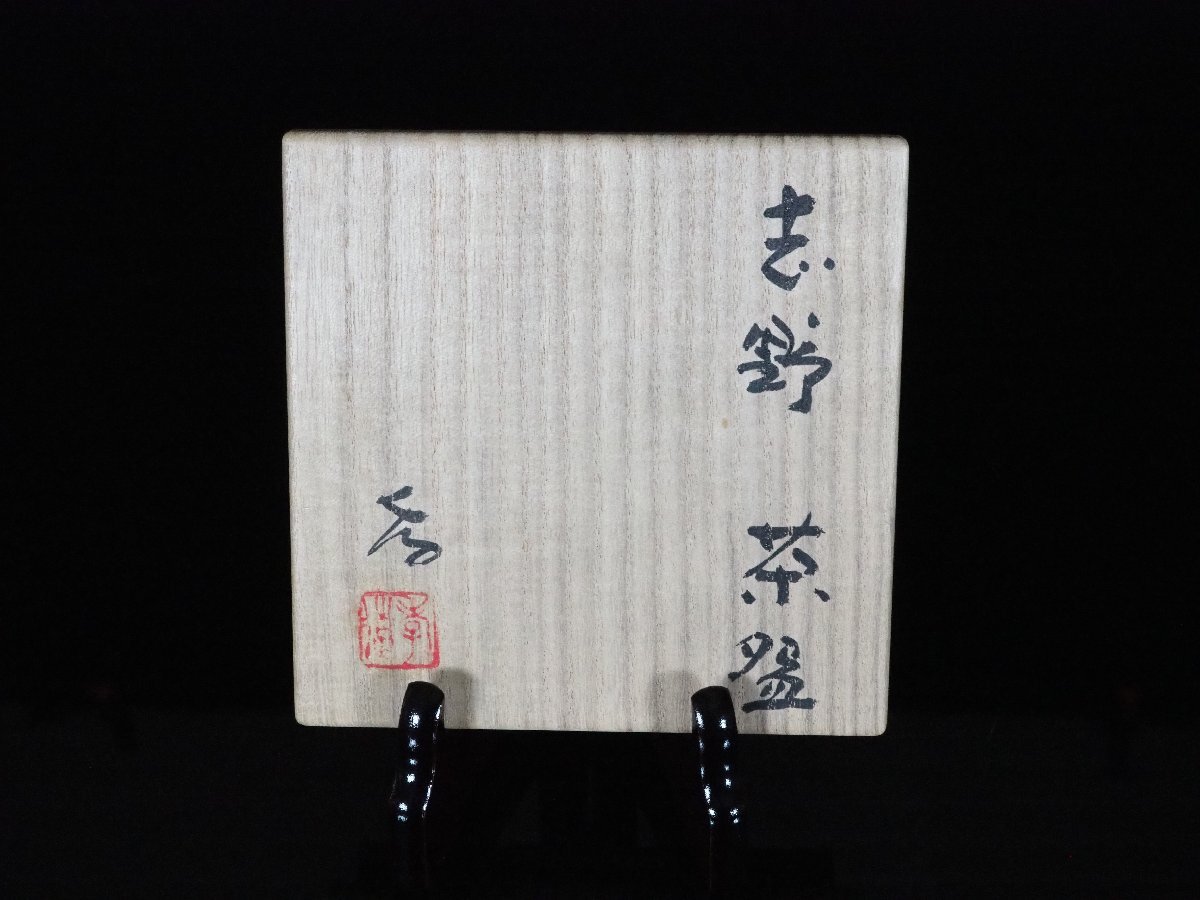 志野 茶盌
秀